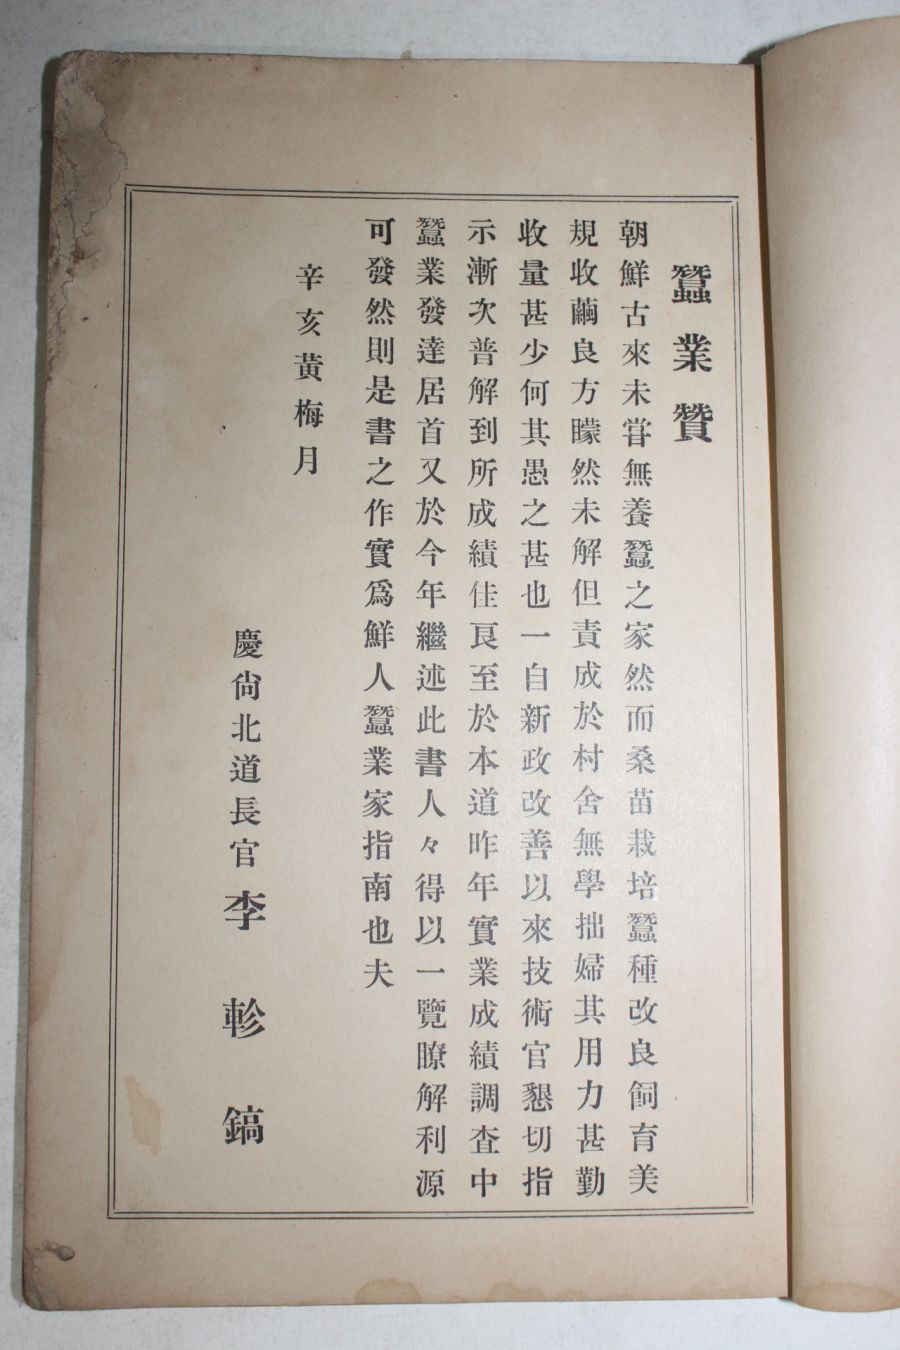 蠶業贊
朝鮮古來未甞無養蠶之家然而桑苗栽培蠶種改良飼育美
規收繭良方矇然未解但責成於村舍無學拙婦其用力甚勤
收量甚少何其愚之甚也一自新政改善以來技術官懇切指
示漸次普解到所成績佳良至於本道昨年實業成績調査中
蠶業發達居首又於今年繼述此書人々得以一覽瞭解利源
可發然則是書之作實爲鮮人蠶業家指南也夫
辛亥黃梅月
慶尙北道長官李軫鎬